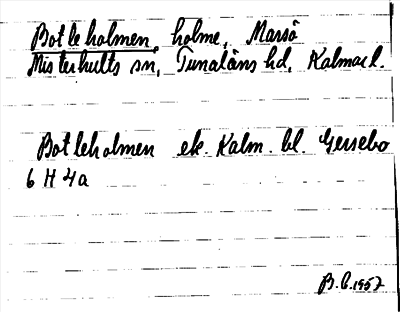 Botleholmen, holme, Marsö
Misterhults sn, Tunaläns hd, Kalmar l.
Botleholmen ek. Kalm. bl. Gersebo
6 H 4a
B.C. 1957